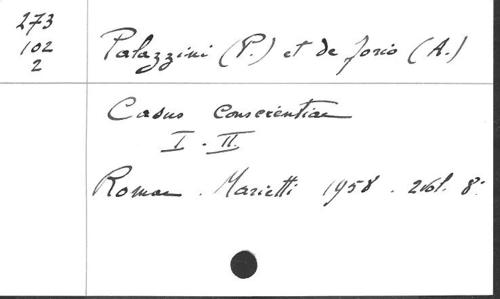 273
102
2
Palazzini (P.) et de Jorio (A.)
Casus Conscientiae
I - II.
Romae . Marietti 1958 . 2 vol. 8°